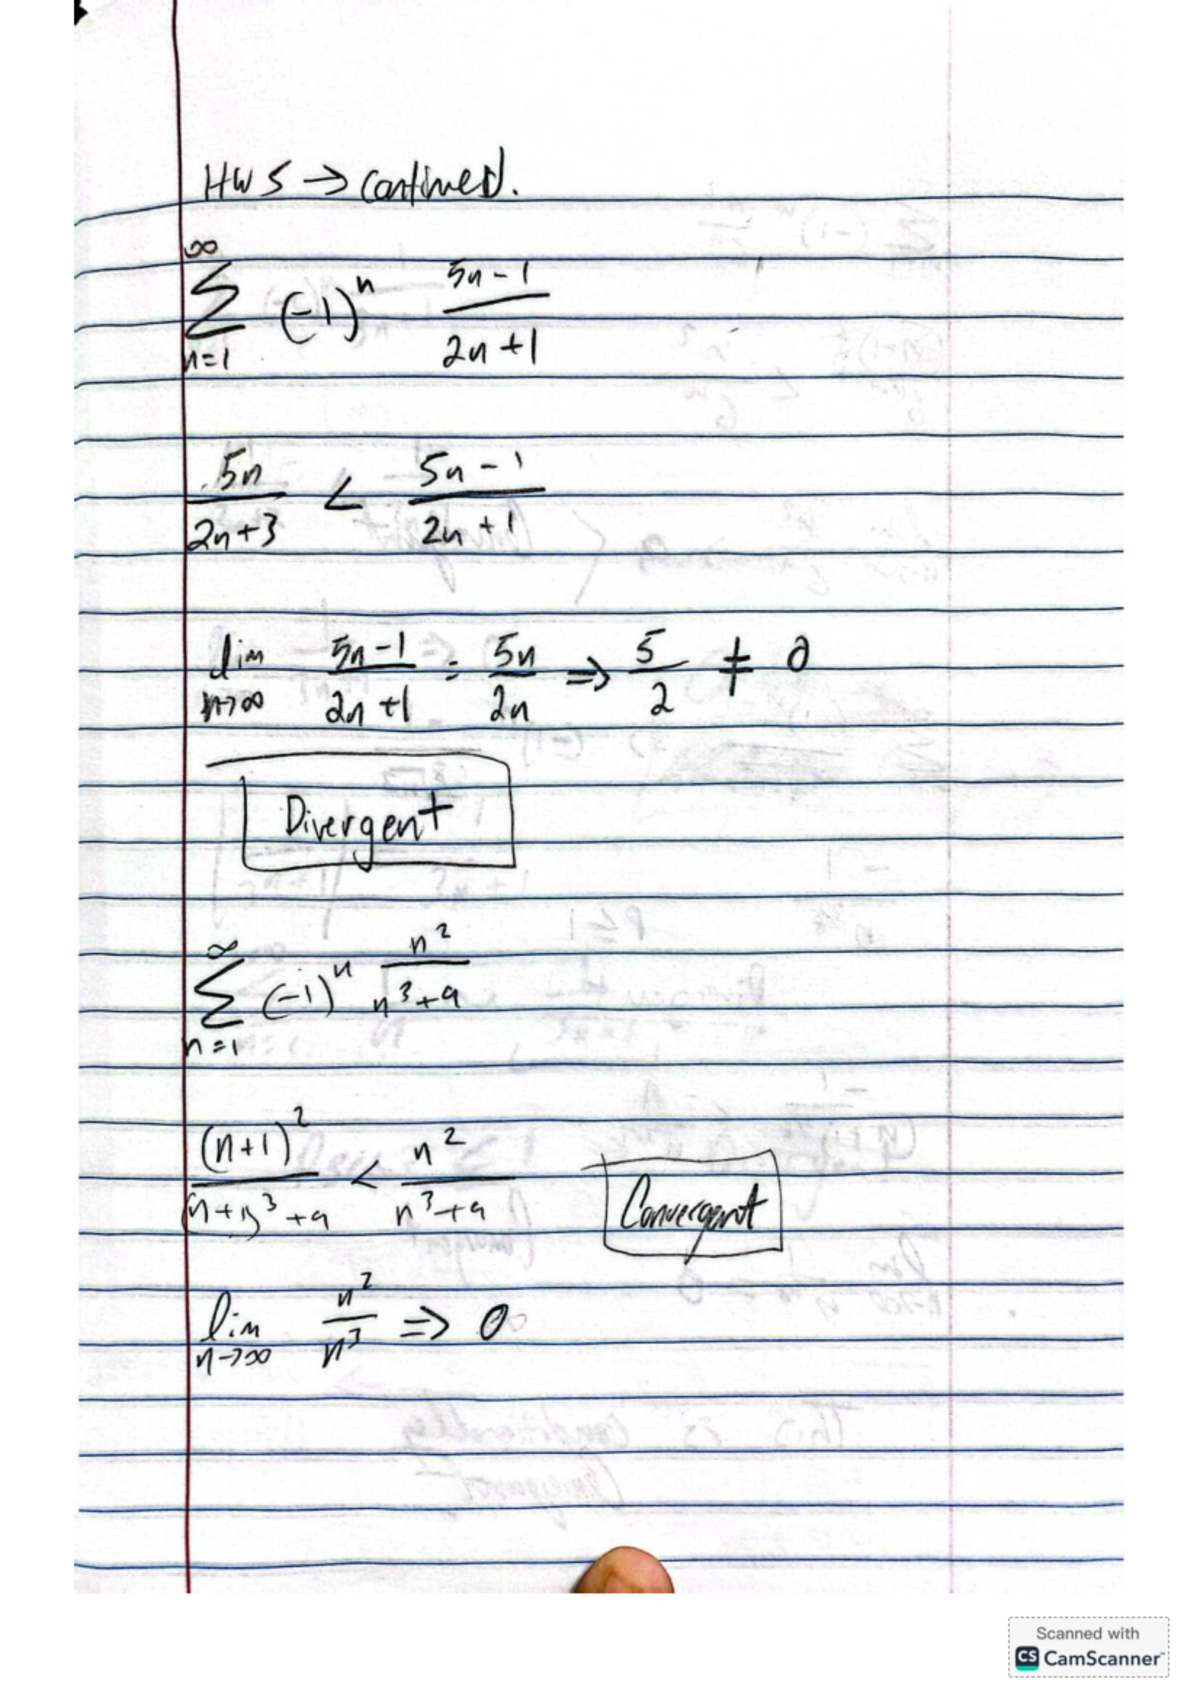 HW 5 → continued.
∞
∑ (-1)^n (5n - 1)/(2n + 1)
n=1
5n/(2n+3) < (5n - 1)/(2n + 1)
lim n→∞ (5n - 1)/(2n + 1) = 5n/2n ⇒ 5/2 ≠ 0
Divergent
∞
∑ (-1)^n n^2/(n^3+9)
n=1
(n+1)^2/((n+1)^3+9) < n^2/(n^3+9)
Convergent
lim n→∞ n^2/n^3 ⇒ 0
Scanned with
CS CamScanner